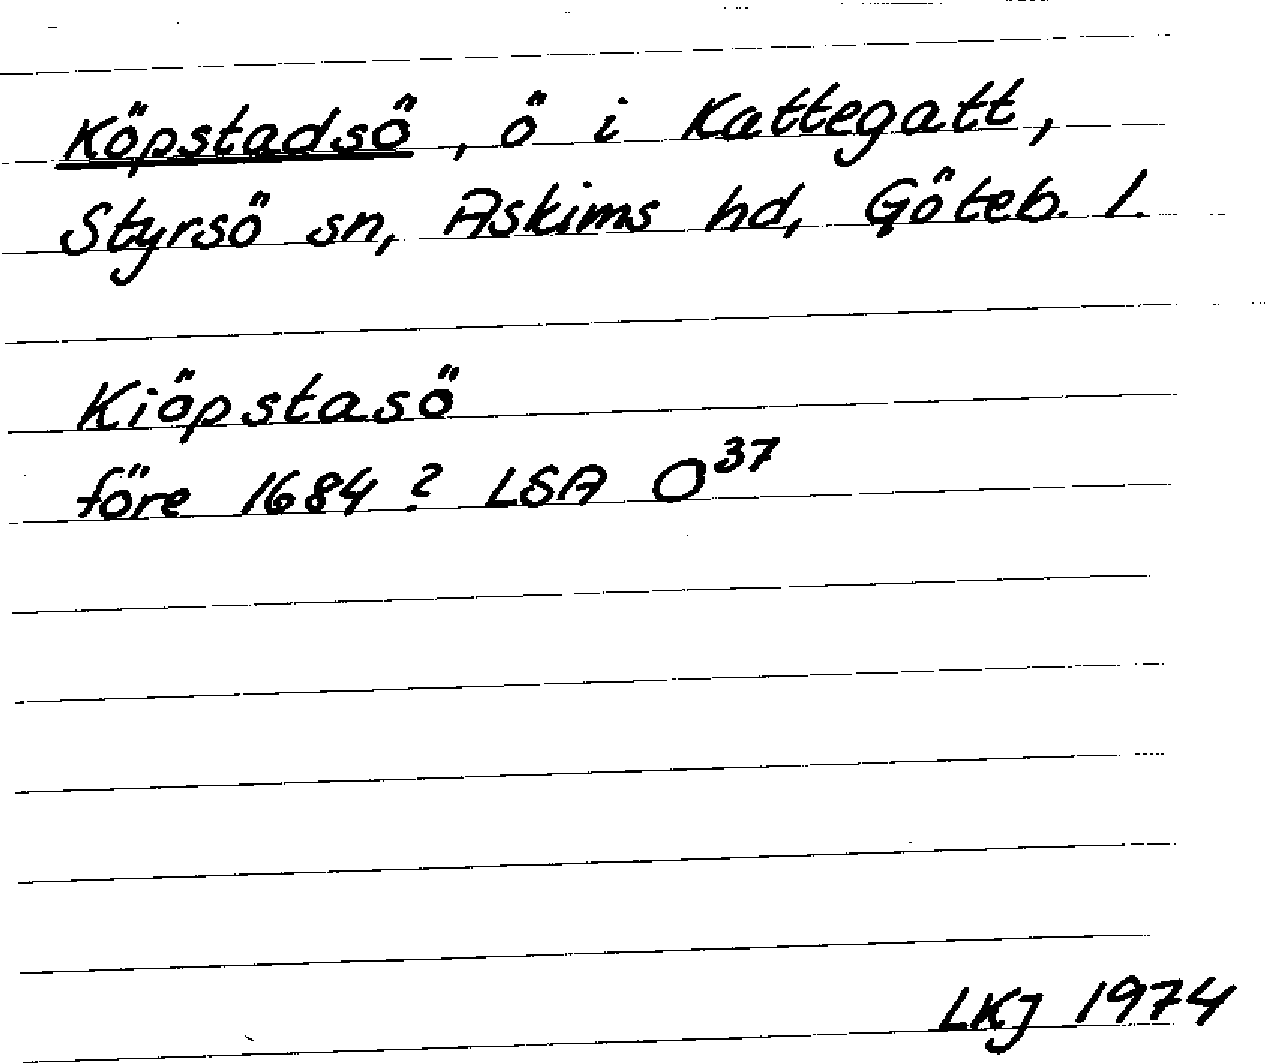 Köpstadsö, ö i Kattegatt,
Styrsö sn, Askims hd, Göteb. l.
Kiöpstasö
före 1684? LSA O³⁷
LKJ 1974